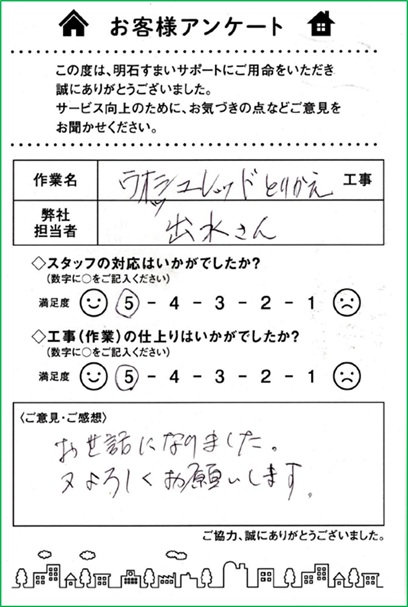 お客様アンケート
この度は、明石すまいサポートにご用命をいただき
誠にありがとうございました。
サービス向上のために、お気づきの点などご意見を
お聞かせください。
作業名 ウォシュレットとりかえ 工事
弊社担当者 出水さん
◇スタッフの対応はいかがでしたか?
(数字に○をご記入ください)
満足度 5 - 4 - 3 - 2 - 1
◇工事(作業)の仕上りはいかがでしたか?
(数字に○をご記入ください)
満足度 5 - 4 - 3 - 2 - 1
〈ご意見・ご感想〉
お世話になりました。
又よろしくお願いします。
ご協力、誠にありがとうございました。